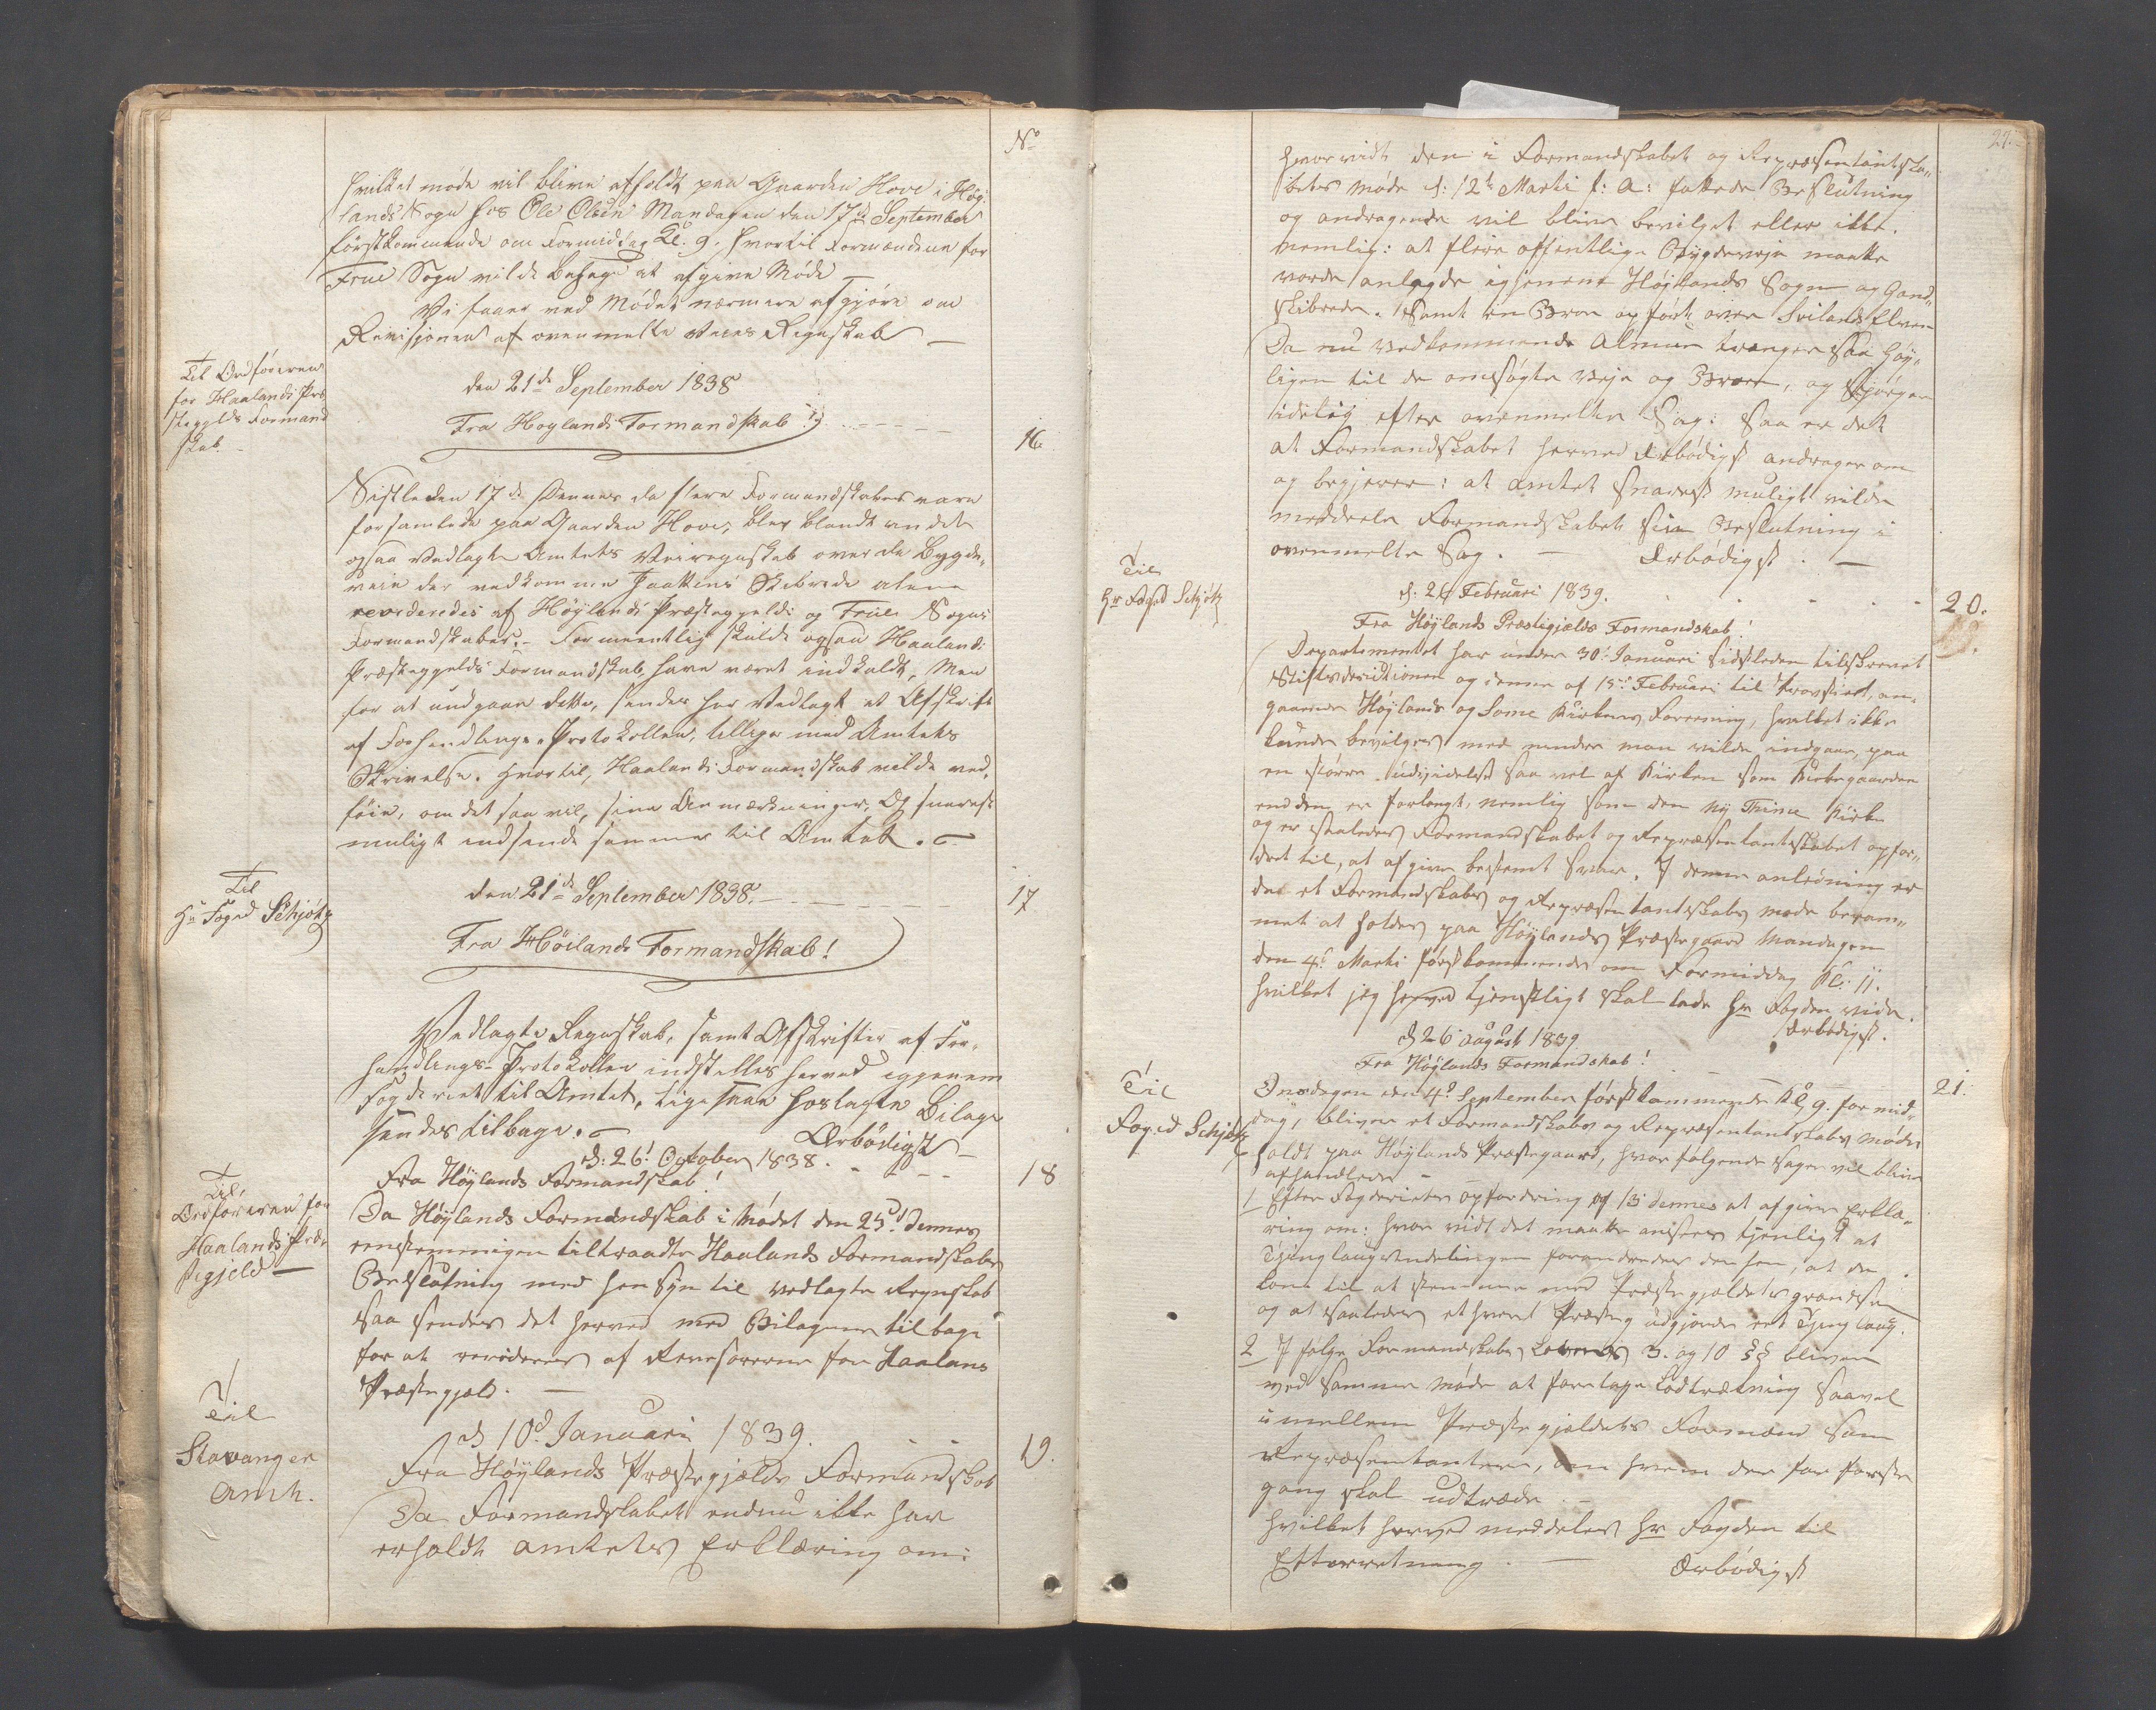 No
hvilket møde vil blive afholdt paa Gaarden Hove i Høy-
lands Sogn hos Ole Olsen Mandagen den 17de September
førstkommende om Formiddag Kl. 9. hvortil Formændene for
Frue Sogn vilde behage at afgive Møde —
Vi faaer ved Mødet nærmere afgjøre om
Revisjonen af ovenmelte Veies Regnskab —
Til Ordføreren
for Haalands Præ
steggelds Formand
skab. -
den 21de September 1838
Fra Hoylands Formandskab
16
Sistleden 17de Dennes da flere Formandskaber vare
forsamlede paa Gaarden Hove, blev blandt andet
ogsaa Vedlagte Amtets Veiregnskab over de Bygde-
veie der vedkomme Jaattens Skibrede alene
revideredes af Høylands Præsteggelds og Frue Sogns
Formandskaber. - Formeentlig skulde ogsaa Haalands
Præsteggelds Formandskab have været indkaldt, Men
for at undgaae dette, sendes her Vedlagt et Afskrift
af Forhandlings-Protokollen, tillige med Amtets
Skrivelse. hvortil, Haalands Formandskab vilde ved-
føie, om det saa vil, sine Anmærkninger, Og snarest
muligt indsende samme til Amtet.
Til
Hr Foged Schjøtz
den 21de September 1838.
17
Fra Höilands Formandskab!
Vedlagte Regnskab, samt Afskrifter af For-
handlings-Protokollen indstilles herved igjenem
Fogderiet til Amtet. Ligesaa hoslagte Bilage
sendes tilbage.
Ærbødigst
d: 26! October 1838.
18
Fra Høylands Formandskab!
Til,
Ordføreren for
Haalands Præ
stegjeld —
Da Høylands Formandskab i Mødet den 25d Dennes
eenstemmigen tiltraadte Haalands Formandskabs
Beslutning med hensyn til vedlagte Regnskab
saa sendes det herved med Bilagene tilbage
for at revideres af Revisorerne for Haalans
Præstegjeld. —
Til
Stavanger
Amt.
d 10d Januari 1839.
19.
Fra Høylands Præstegjælds Formandskab
Da Formandskabet endnu ikke har
erholdt Amtets Erklæring om:
27.
hvorvidt den i Formandskabet og Repræsentantska-
bets Møde d: 12te Marti f: A: fattede Beslutning
og andragende vil blive bevilget eller ikke.
nemlig: at fleire offentlige Bygdeveje maatte
vorde anlagde igjenem Høylands Sogn og Gand-
skibrede. Samt en Broe opført over Svilands Elven
Da nu Vedkommende Almue trænger saa høy-
ligen til de omsøgte Veje og Broen, og Spørger
idelig efter ovenmelte Sag: Saa er det
at Formandskabet herved Ærbødigst andrager om
og begjerer: at Amtet snarest muligt vilde
meddeele Formandskabet sin Beslutning i
ovenmelte Sag. — Ærbødigst. —
Til
Hr Foged Schjøtz
d: 26 Februari 1839.
20.
Fra Høylands Præstegjælds Formandskab!
Departementet har under 30! Januari sidstleden tilskrevet
Stiftsdirektionen og denne af 15d Februari til Provstiet, an-
gaaende Høylands og Some Kirkers Foreening, hvilket ikke
kunde bevilges med mindre man vilde indgaae, paa
en større udvidelse saa vel af Kirken som Kirkegaarden
end den er forlangt, nemlig som den ny Thime Kirke
og er saaledes Formandskabet og Repræsentantskabet opfor-
dret til, at afgive bestemt Svar. I denne anledning er
da et Formandskabs og Repræsentantskabs møde beram-
met at holdes paa Høylands Præstegaard Mandagen
den 4d Marti førstkommende om Formiddag Kl: 11.
hvilket jeg herved tjenstligt skal lade Hr Fogden vide.
Ærbødigst.
d 26 August 1839
Fra Høylands Formandskab!
21.
Til
Foged Schjøtz
Onsdagen den 4d September førstkommende Kl 9. formid-
dag, bliver et Formandskabs og Repræsentantskabs Møde
holdt paa Høylands Præstegaard, hvor følgende Sager vil blive
afhandlede —
1 Efter Fogderiets opfordring af 15 dennes at afgive Erklæ-
ring om: hvor vidt det maatte ansees tjenligt at
Thinglaugsindelingen forandredes derhen, at de
kom til at stemme med Præstegjældets grændser
og at saaledes ethvert Præsteg udgjorde eet Thinglaug.
2 I følge Formandskabs Lovens 3. og 10 §§ bliver
ved samme Møde at foretage Lodtrækning saavel
imellem Præstegjeldets Formænd som
Repræsentanter, om hvem der for første
gang skal udtræde. —
hvilket herved meddeles Hr Fogden til
Efterretning. — Ærbødigst